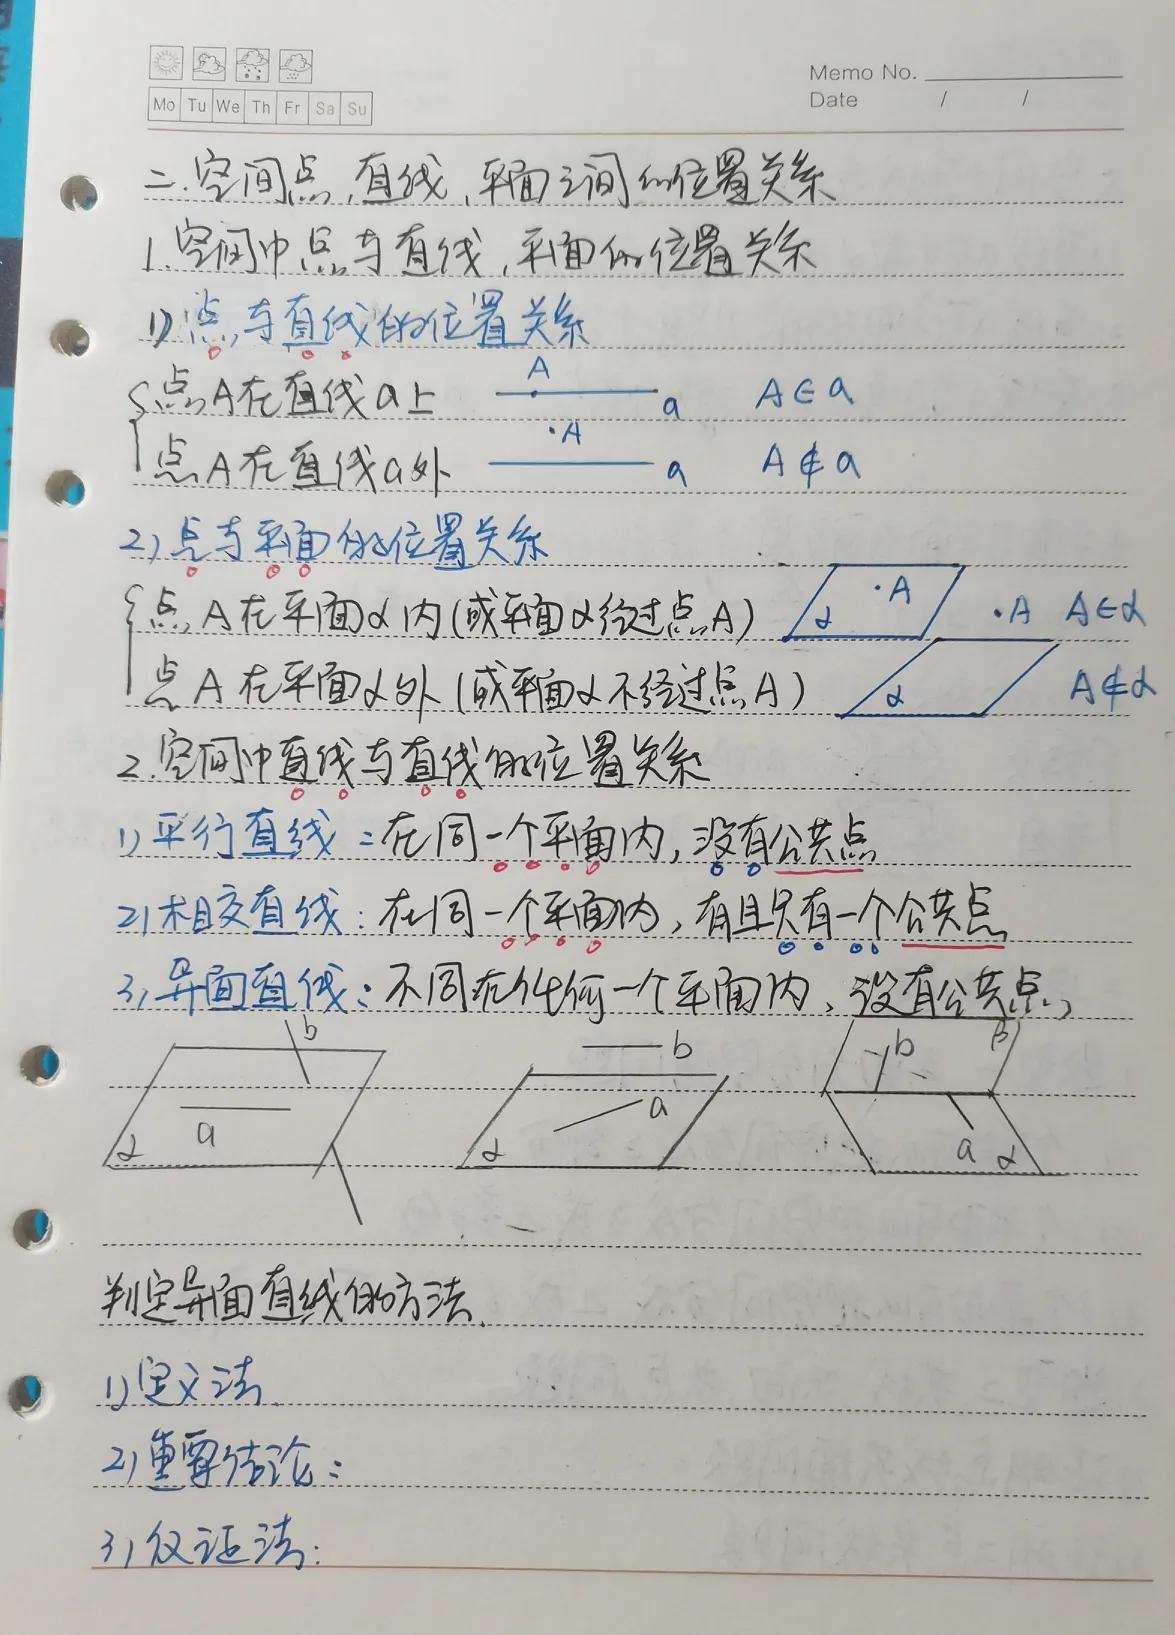 Memo No.
Mo Tu We Th Fr Sa Su
Date / /
二.空间点,直线,平面之间的位置关系
1.空间中点与直线,平面的位置关系
1)点与直线的位置关系
点A在直线a上 A a A∈a
点A在直线a外 A a A∉a
2)点与平面的位置关系
点A在平面α内(或平面α经过点A) A α A∈α
点A在平面α外(或平面α不经过点A) A α A∉α
2.空间中直线与直线的位置关系
1)平行直线:在同一个平面内,没有公共点
2)相交直线:在同一个平面内,有且只有一个公共点
3)异面直线:不同在任何一个平面内,没有公共点,
b a α b a α b β a α
判定异面直线的方法.
1)定义法.
2)重要结论:
3)反证法: